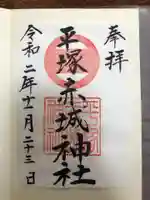 奉拝
平塚赤城神社
令和二年十二月二十三日